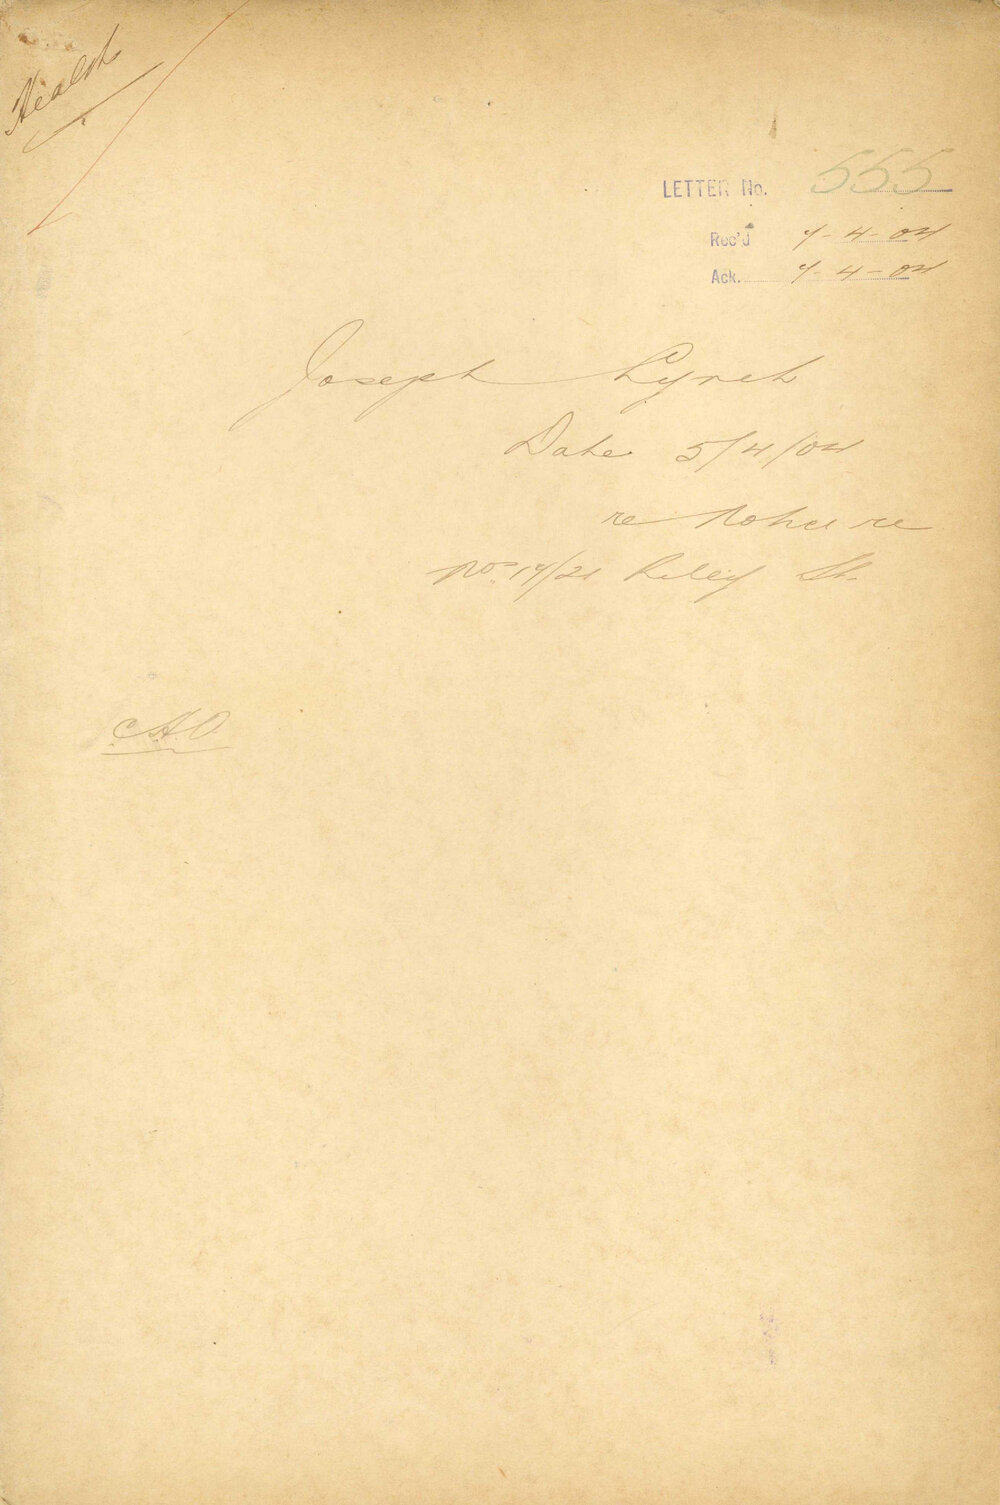 Health
LETTER No. 555
Rec'd 7-4-04
Ack. 7-4-04
Joseph Lynch
Date 5/4/04
re
No. 17/21 Riley St.